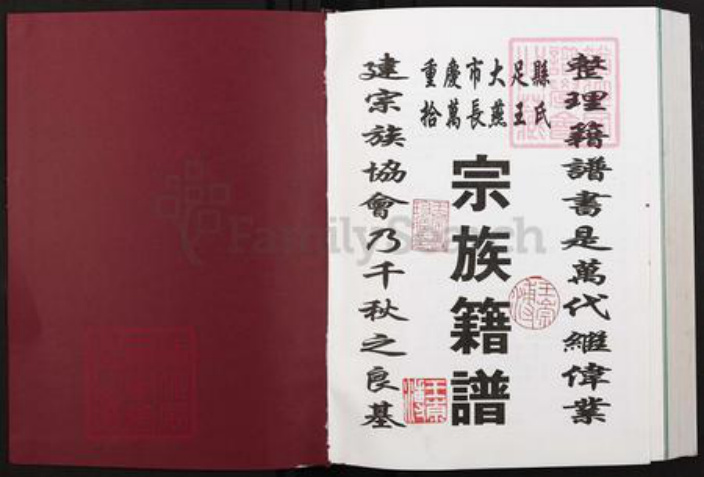 整理籍譜書是萬代繼偉業
重慶市大足縣
拾萬長燕王氏
宗族籍譜
建宗族協會乃千秋之良基
FamilySearch